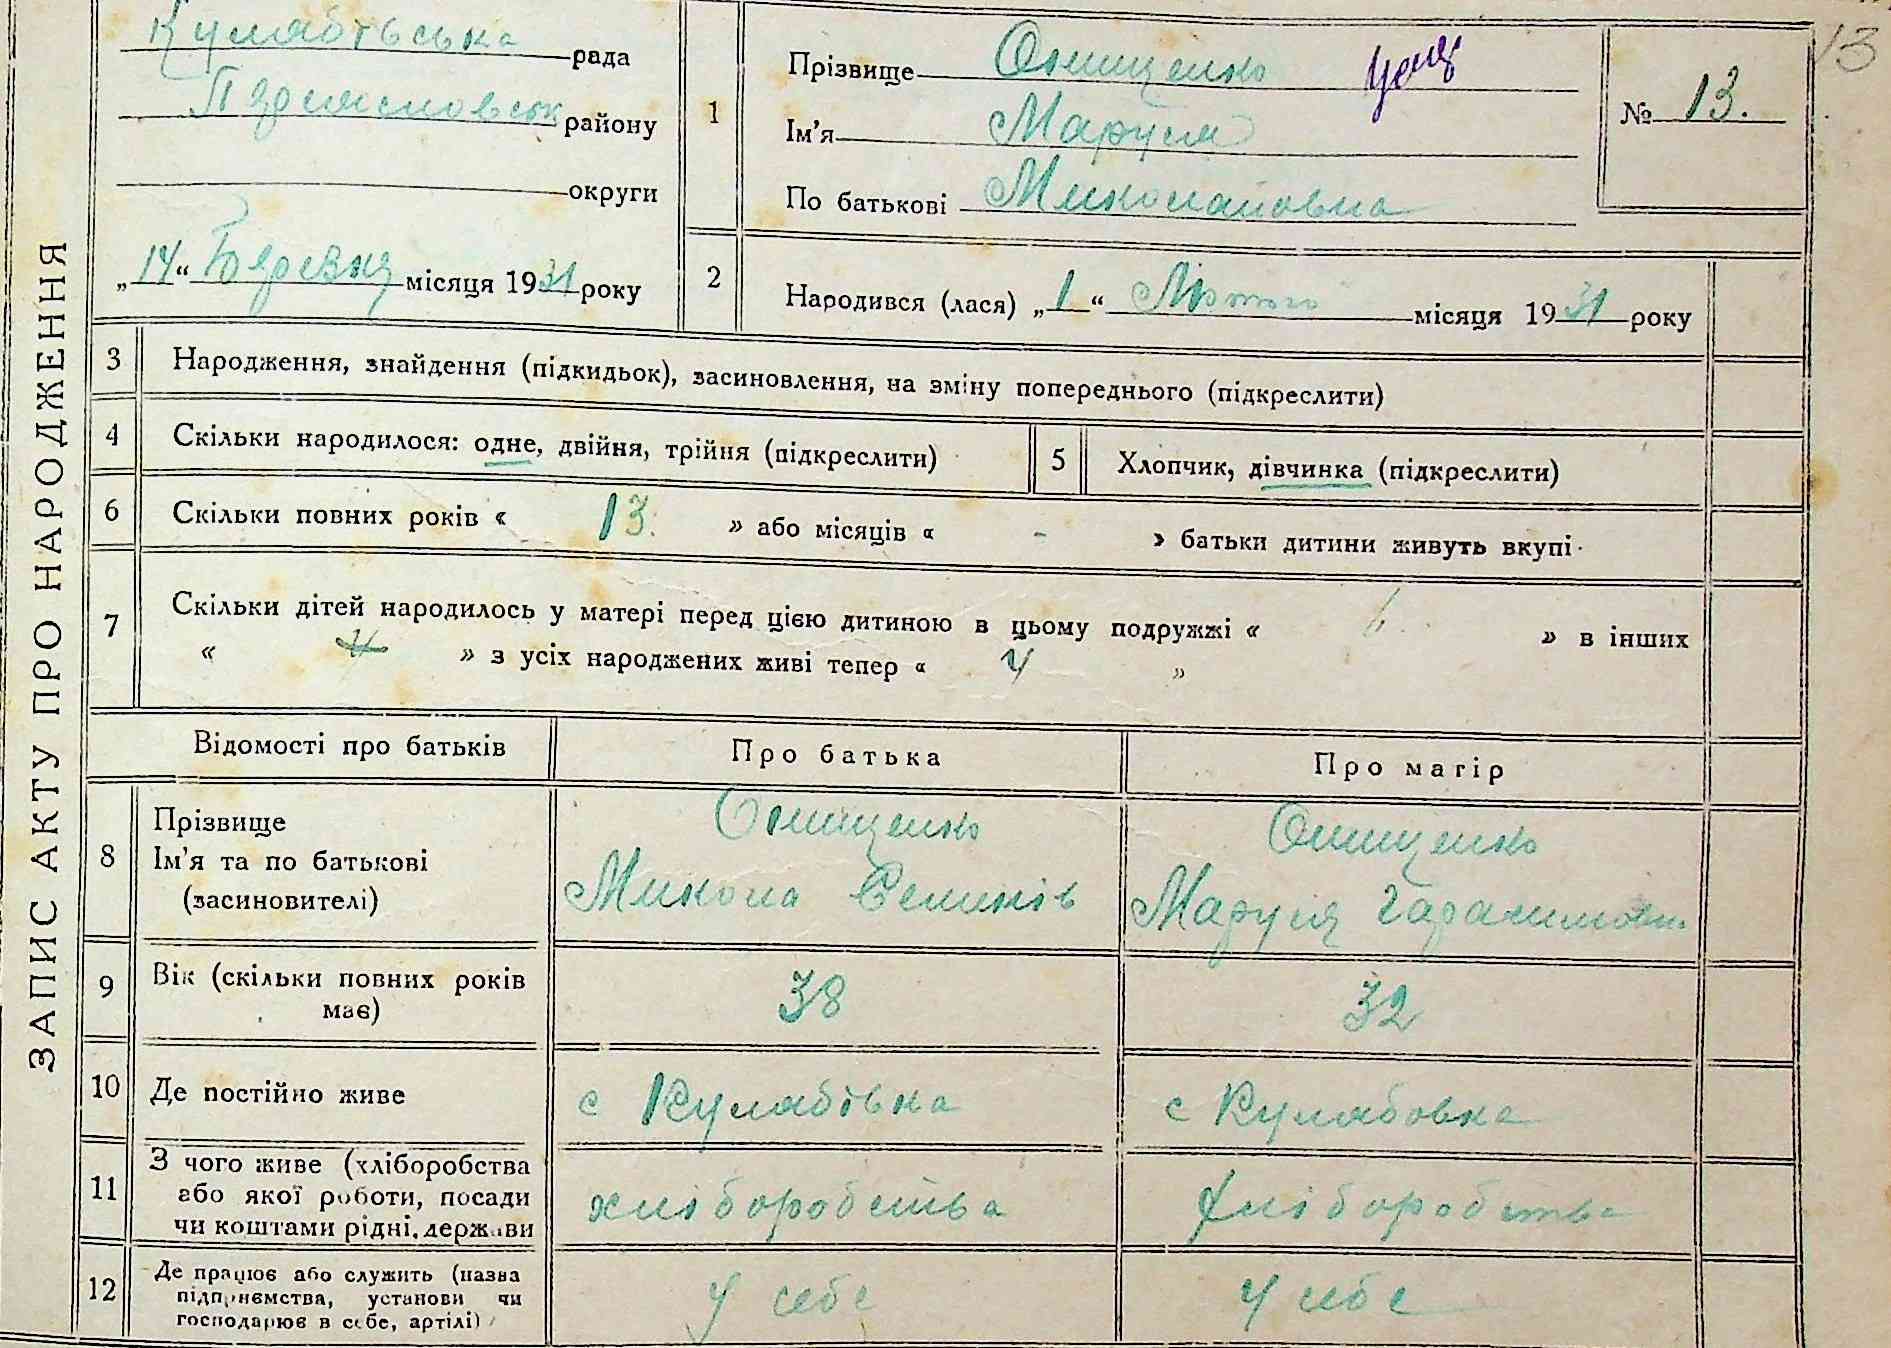 ЗАПИС АКТУ ПРО НАРОДЖЕННЯ
Кулябівська рада
району
округи
„14“ Березня місяця 1931 року
1
Прізвище Онищенко
Ім'я Маруся
По батькові Миколаївна
№ 13.
13
2
Народився (лася) „1“ Лютого місяця 1931 року
3 Народження, знайдення (підкидьок), засиновлення, на зміну попереднього (підкреслити)
4 Скільки народилося: одне, двійня, трійня (підкреслити)
5 Хлопчик, дівчинка (підкреслити)
6 Скільки повних років « 13. » або місяців « - » батьки дитини живуть вкупі
7 Скільки дітей народилось у матері перед цією дитиною в цьому подружжі « 6. » в інших
« » з усіх народжених живі тепер « 4 »
Відомості про батьків Про батька Про матір
8 Прізвище
Ім'я та по батькові
(засиновителі)
Онищенко
Микола Семинів
Онищенко
Маруся
9 Вік (скільки повних років
має)
38
32
10 Де постійно живе
с Кулябівка
с Кулябовка
11 З чого живе (хліборобства
або якої роботи, посади
чи коштами рідні, держави
хліборобства
хліборобства
12 Де працює або служить (назва
підприємства, установи чи
господарює в себе, артілі)
у себе
у себе